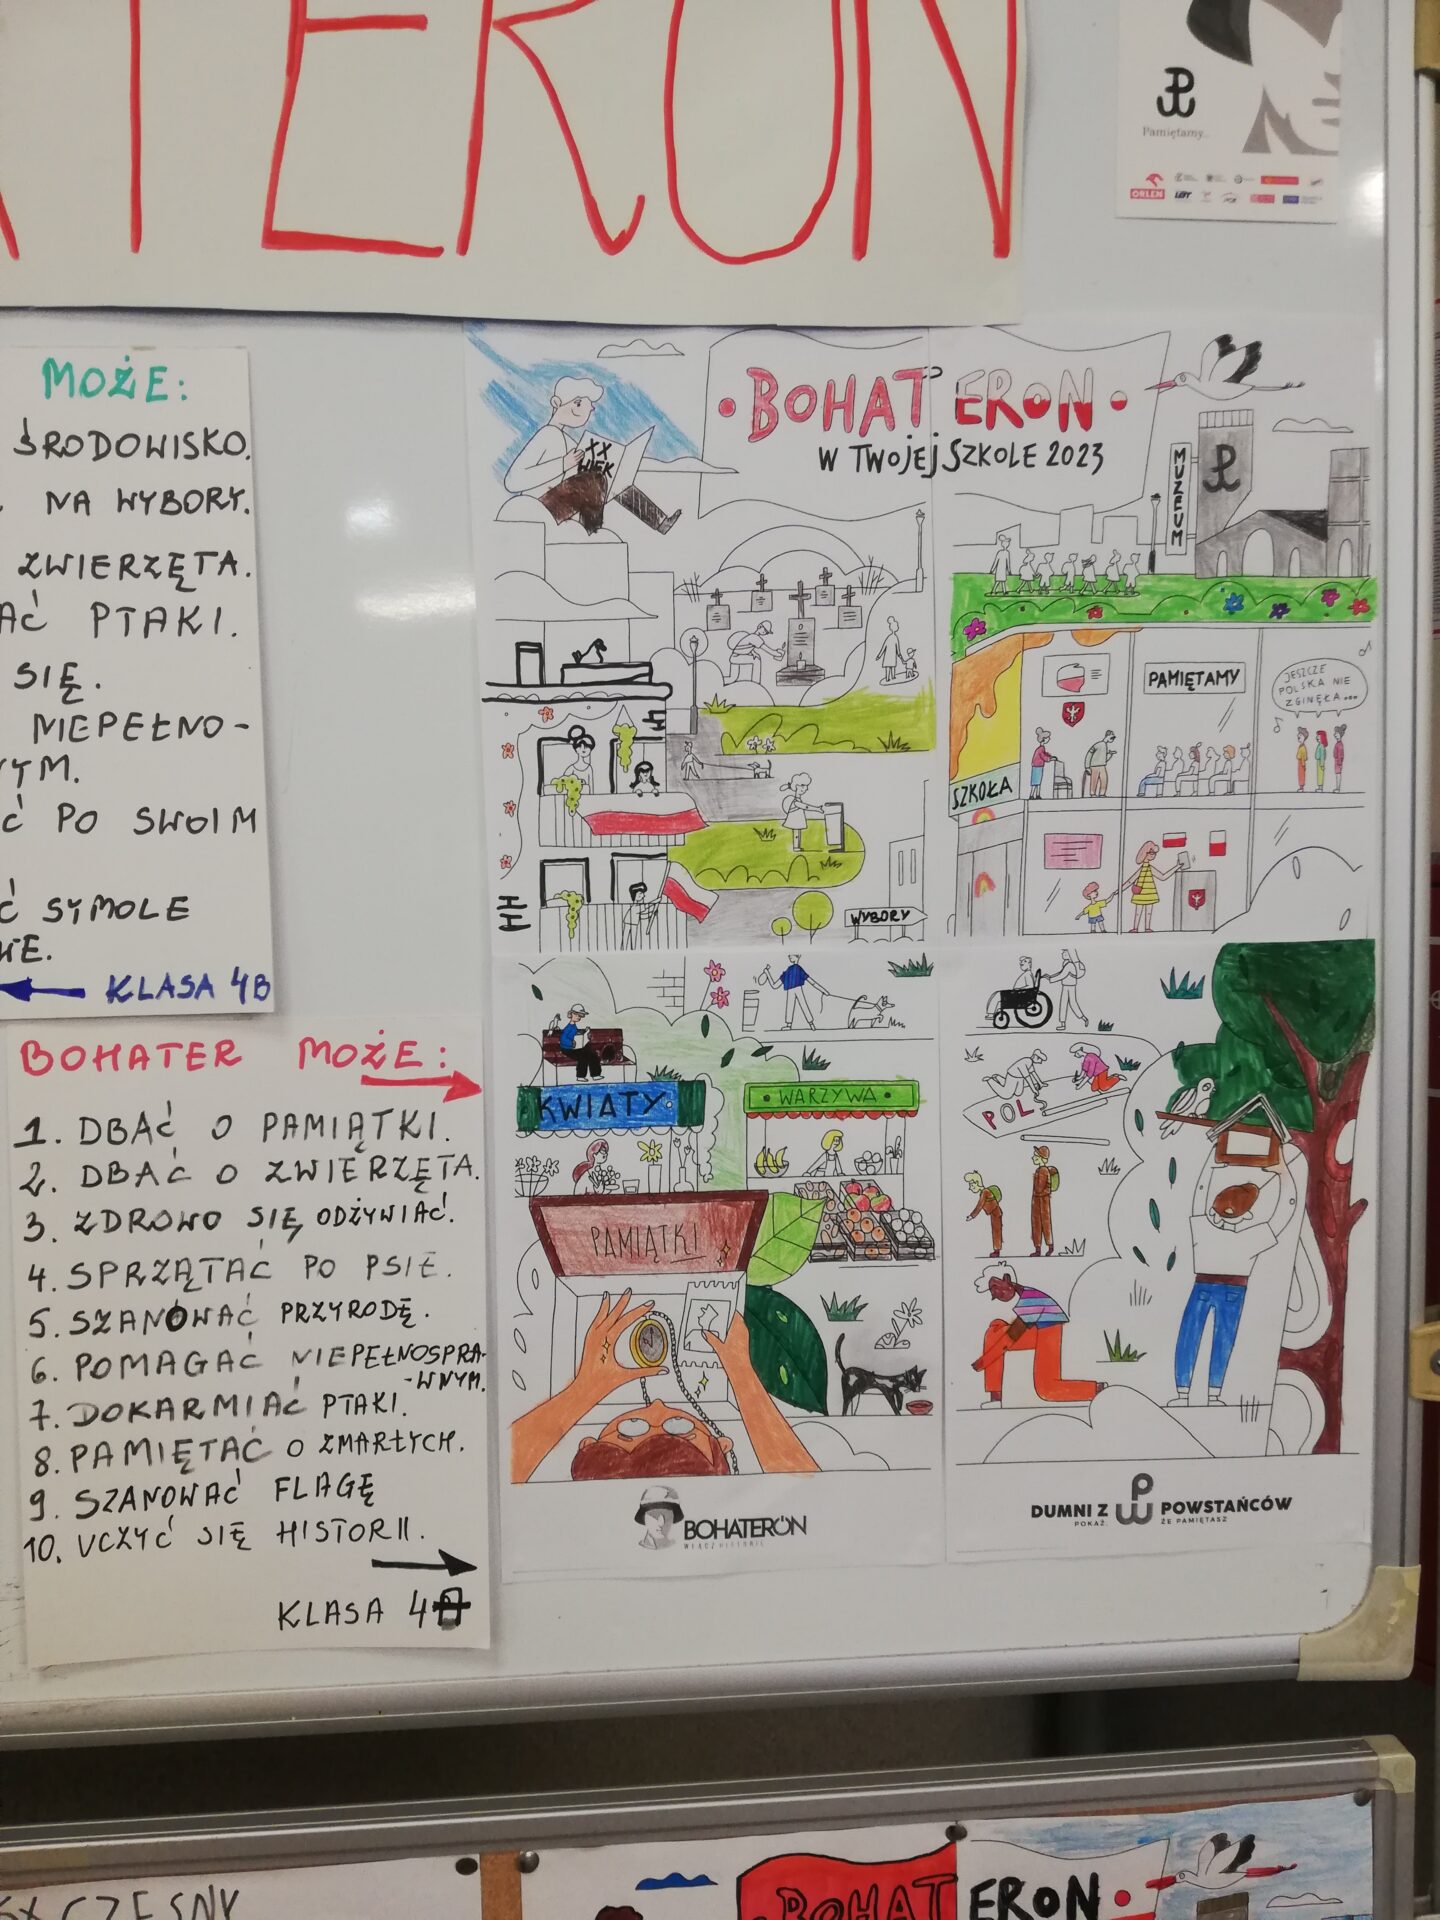 TERON
Pamiętamy..
ORLEN
LOT
MOŻE:
ŚRODOWISKO.
NA WYBORY.
ZWIERZĘTA.
AĆ PTAKI.
SIĘ.
NIEPEŁNO-
YM.
Ć PO SWOIM
Ć SYMOLE
WE.
KLASA 4B
BOHATER MOŻE:
1. DBAĆ O PAMIĄTKI.
2. DBAĆ O ZWIERZĘTA.
3. ZDROWO SIĘ ODŻYWIAĆ.
4. SPRZĄTAĆ PO PSIE.
5. SZANOWAĆ PRZYRODĘ.
6. POMAGAĆ NIEPEŁNOSPRA-
-WNYM.
7. DOKARMIAĆ PTAKI.
8. PAMIĘTAĆ O ZMARŁYCH.
9. SZANOWAĆ FLAGĘ
10. UCZYĆ SIĘ HISTORII.
KLASA 4A
BOHATERON
W TWOJEJ SZKOLE 2023
XX
WIEK
MUZEUM
PAMIĘTAMY
JESZCZE
POLSKA NIE
ZGINĘŁA...
SZKOŁA
WYBORY
KWIATY
WARZYWA
POL
PAMIĄTKI
BOHATERÓN
WŁĄCZ HISTORIĘ
DUMNI Z POWSTAŃCÓW
POKAŻ, ŻE PAMIĘTASZ
BOHATERON